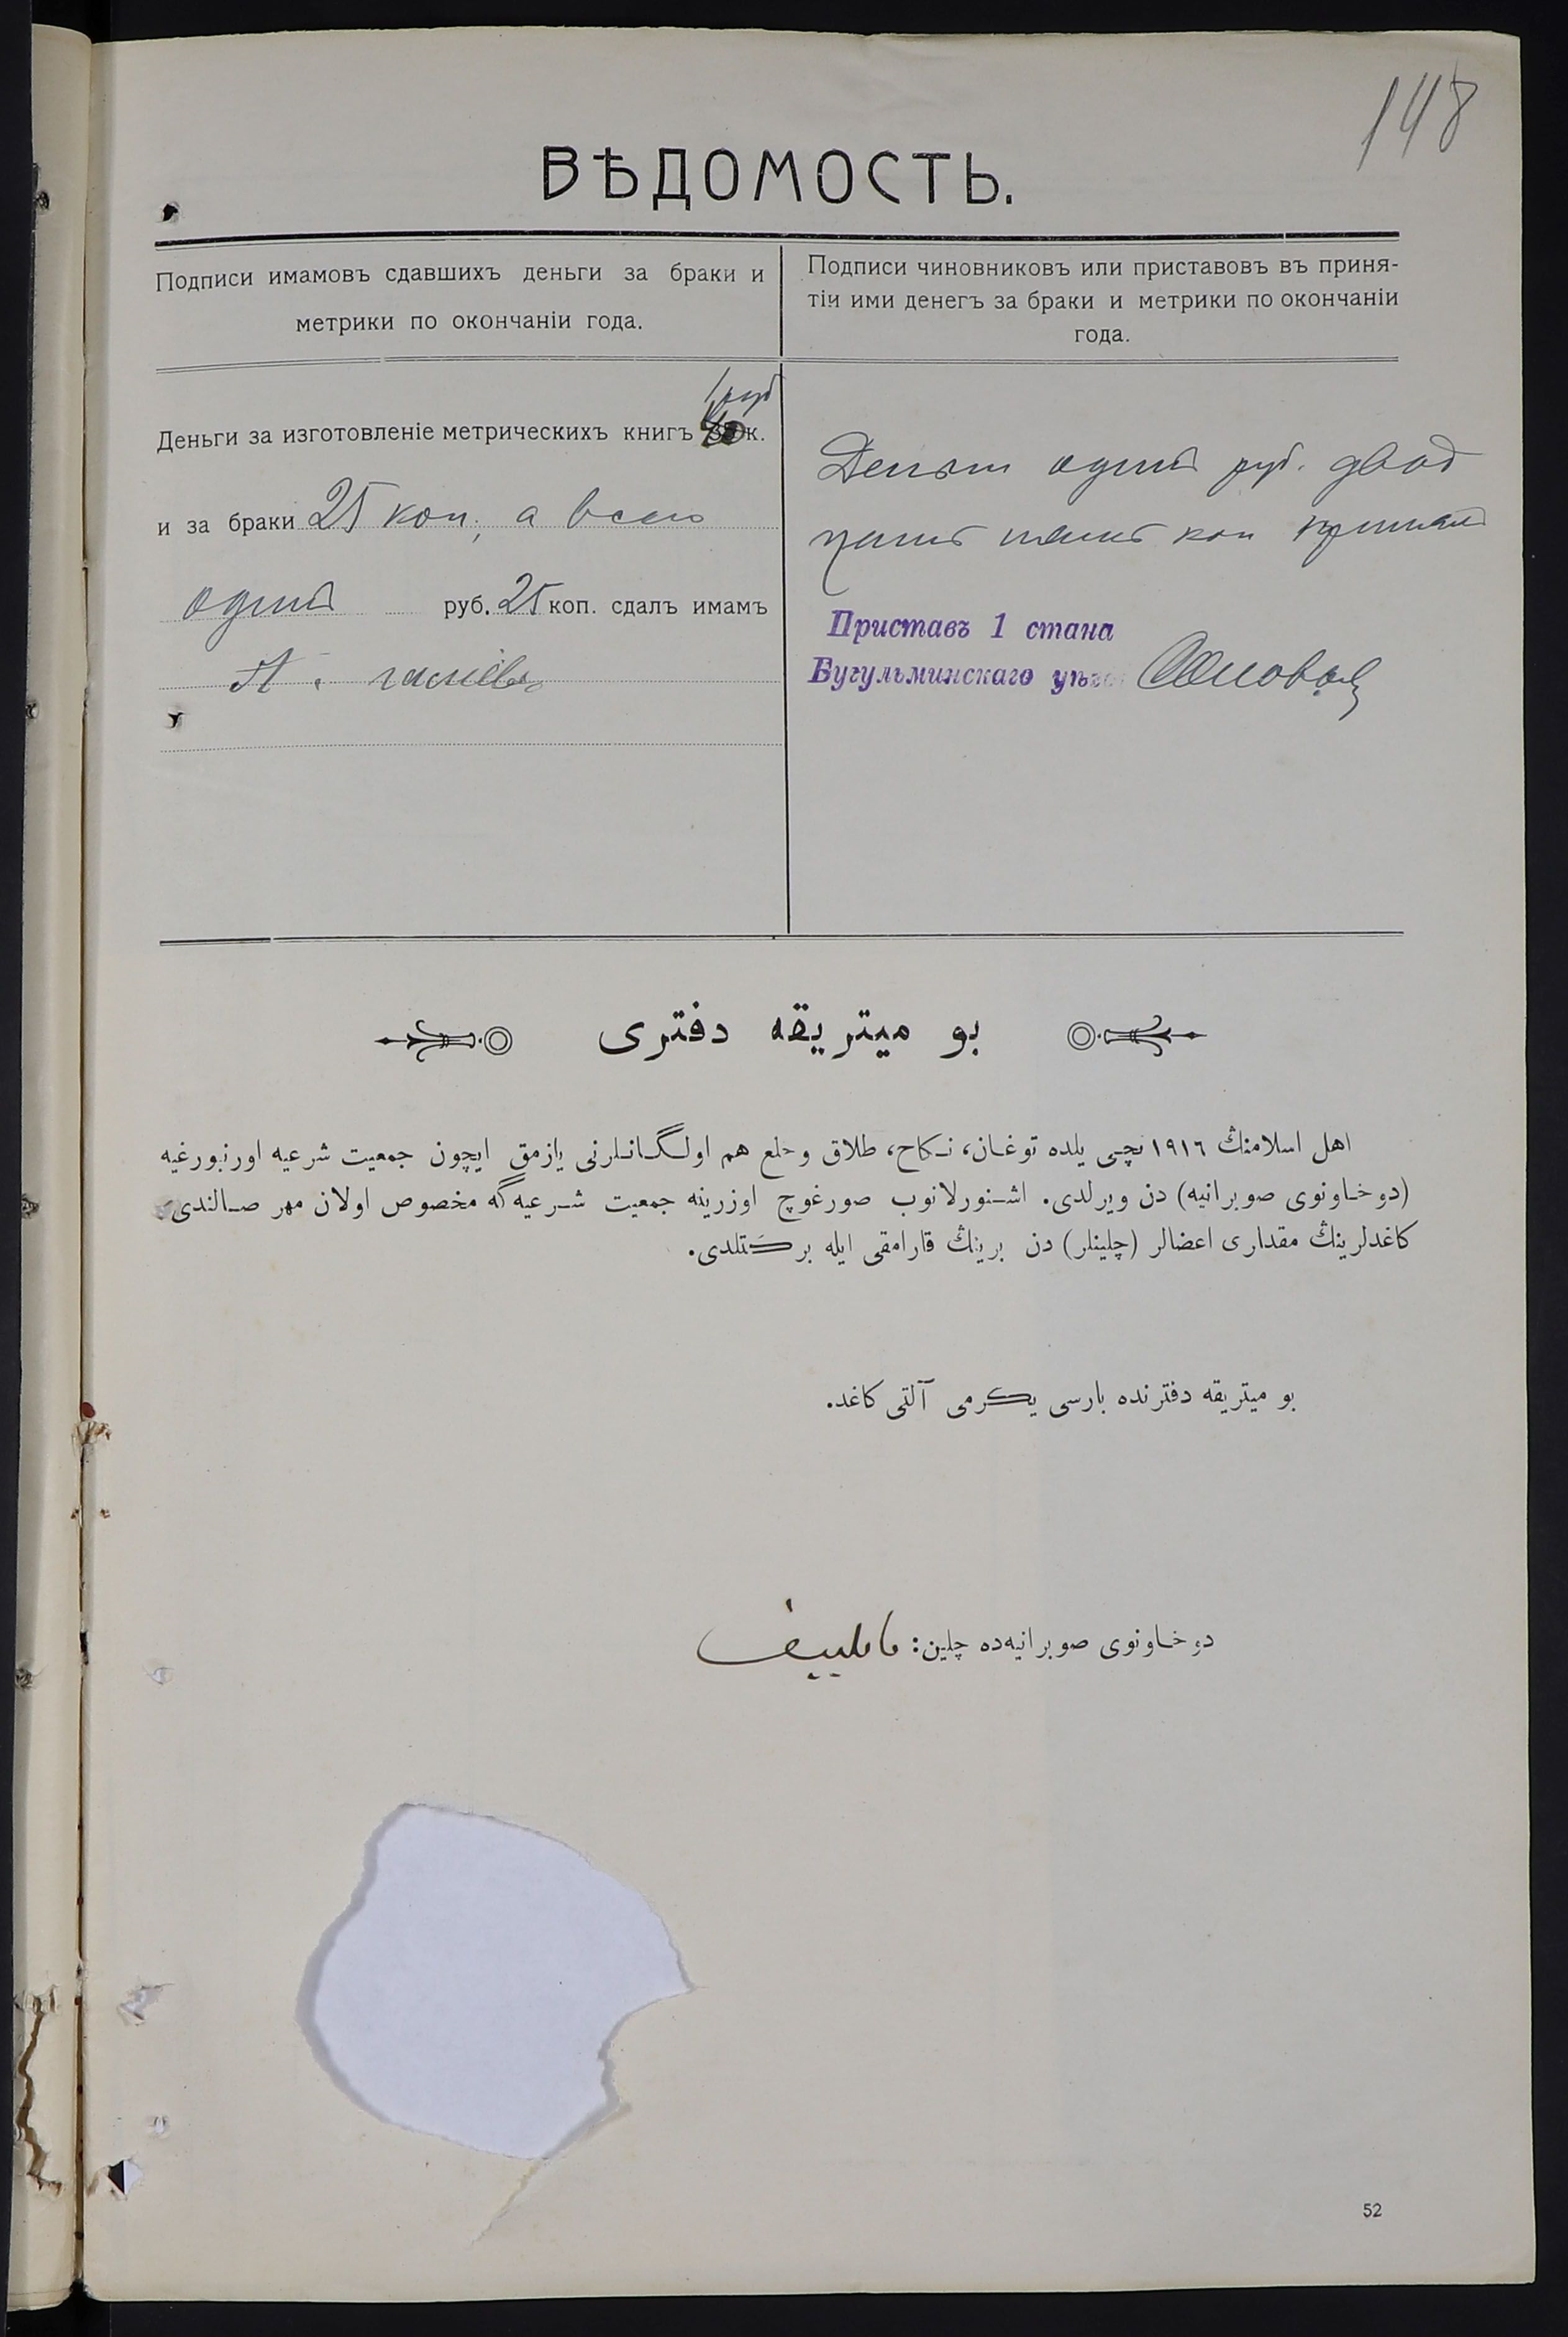 148
ВѢДОМОСТЬ.
Подписи имамовъ сдавшихъ деньги за браки и
метрики по окончаніи года.
Подписи чиновниковъ или приставовъ въ приня-
тіи ими денегъ за браки и метрики по окончаніи
года.
1 руб
Деньги за изготовленіе метрическихъ книгъ к.
и за браки 25 коп, а всего
одинъ руб. 25 коп. сдалъ имамъ
А.
Деньги одинъ руб. двад
цать пять коп принялъ
Приставъ 1 стана
Бугульминскаго уѣз
بو ميتريقه دفترى
اهل اسلامنڭ ١٩١٦ نچى يلده توغان، نكاح، طلاق وخلع هم اولگانلرنى يازمق ايچون جمعيت شرعيه اورنبورغيه
(دوخاونوى صوبرانيه) دن ويرلدى. اشنورلانوب صورغوچ اوزرينه جمعيت شرعيه‌گه مخصوص اولان مهر صالندى.
كاغدلرينڭ مقدارى اعضالر (چلينلر) دن برينڭ قارامقى ايله بركَتلدى.
بو ميتريقه دفترنده بارسى يكرمى آلتى كاغد.
دوخاونوى صوبرانيه‌ده چلين:
52